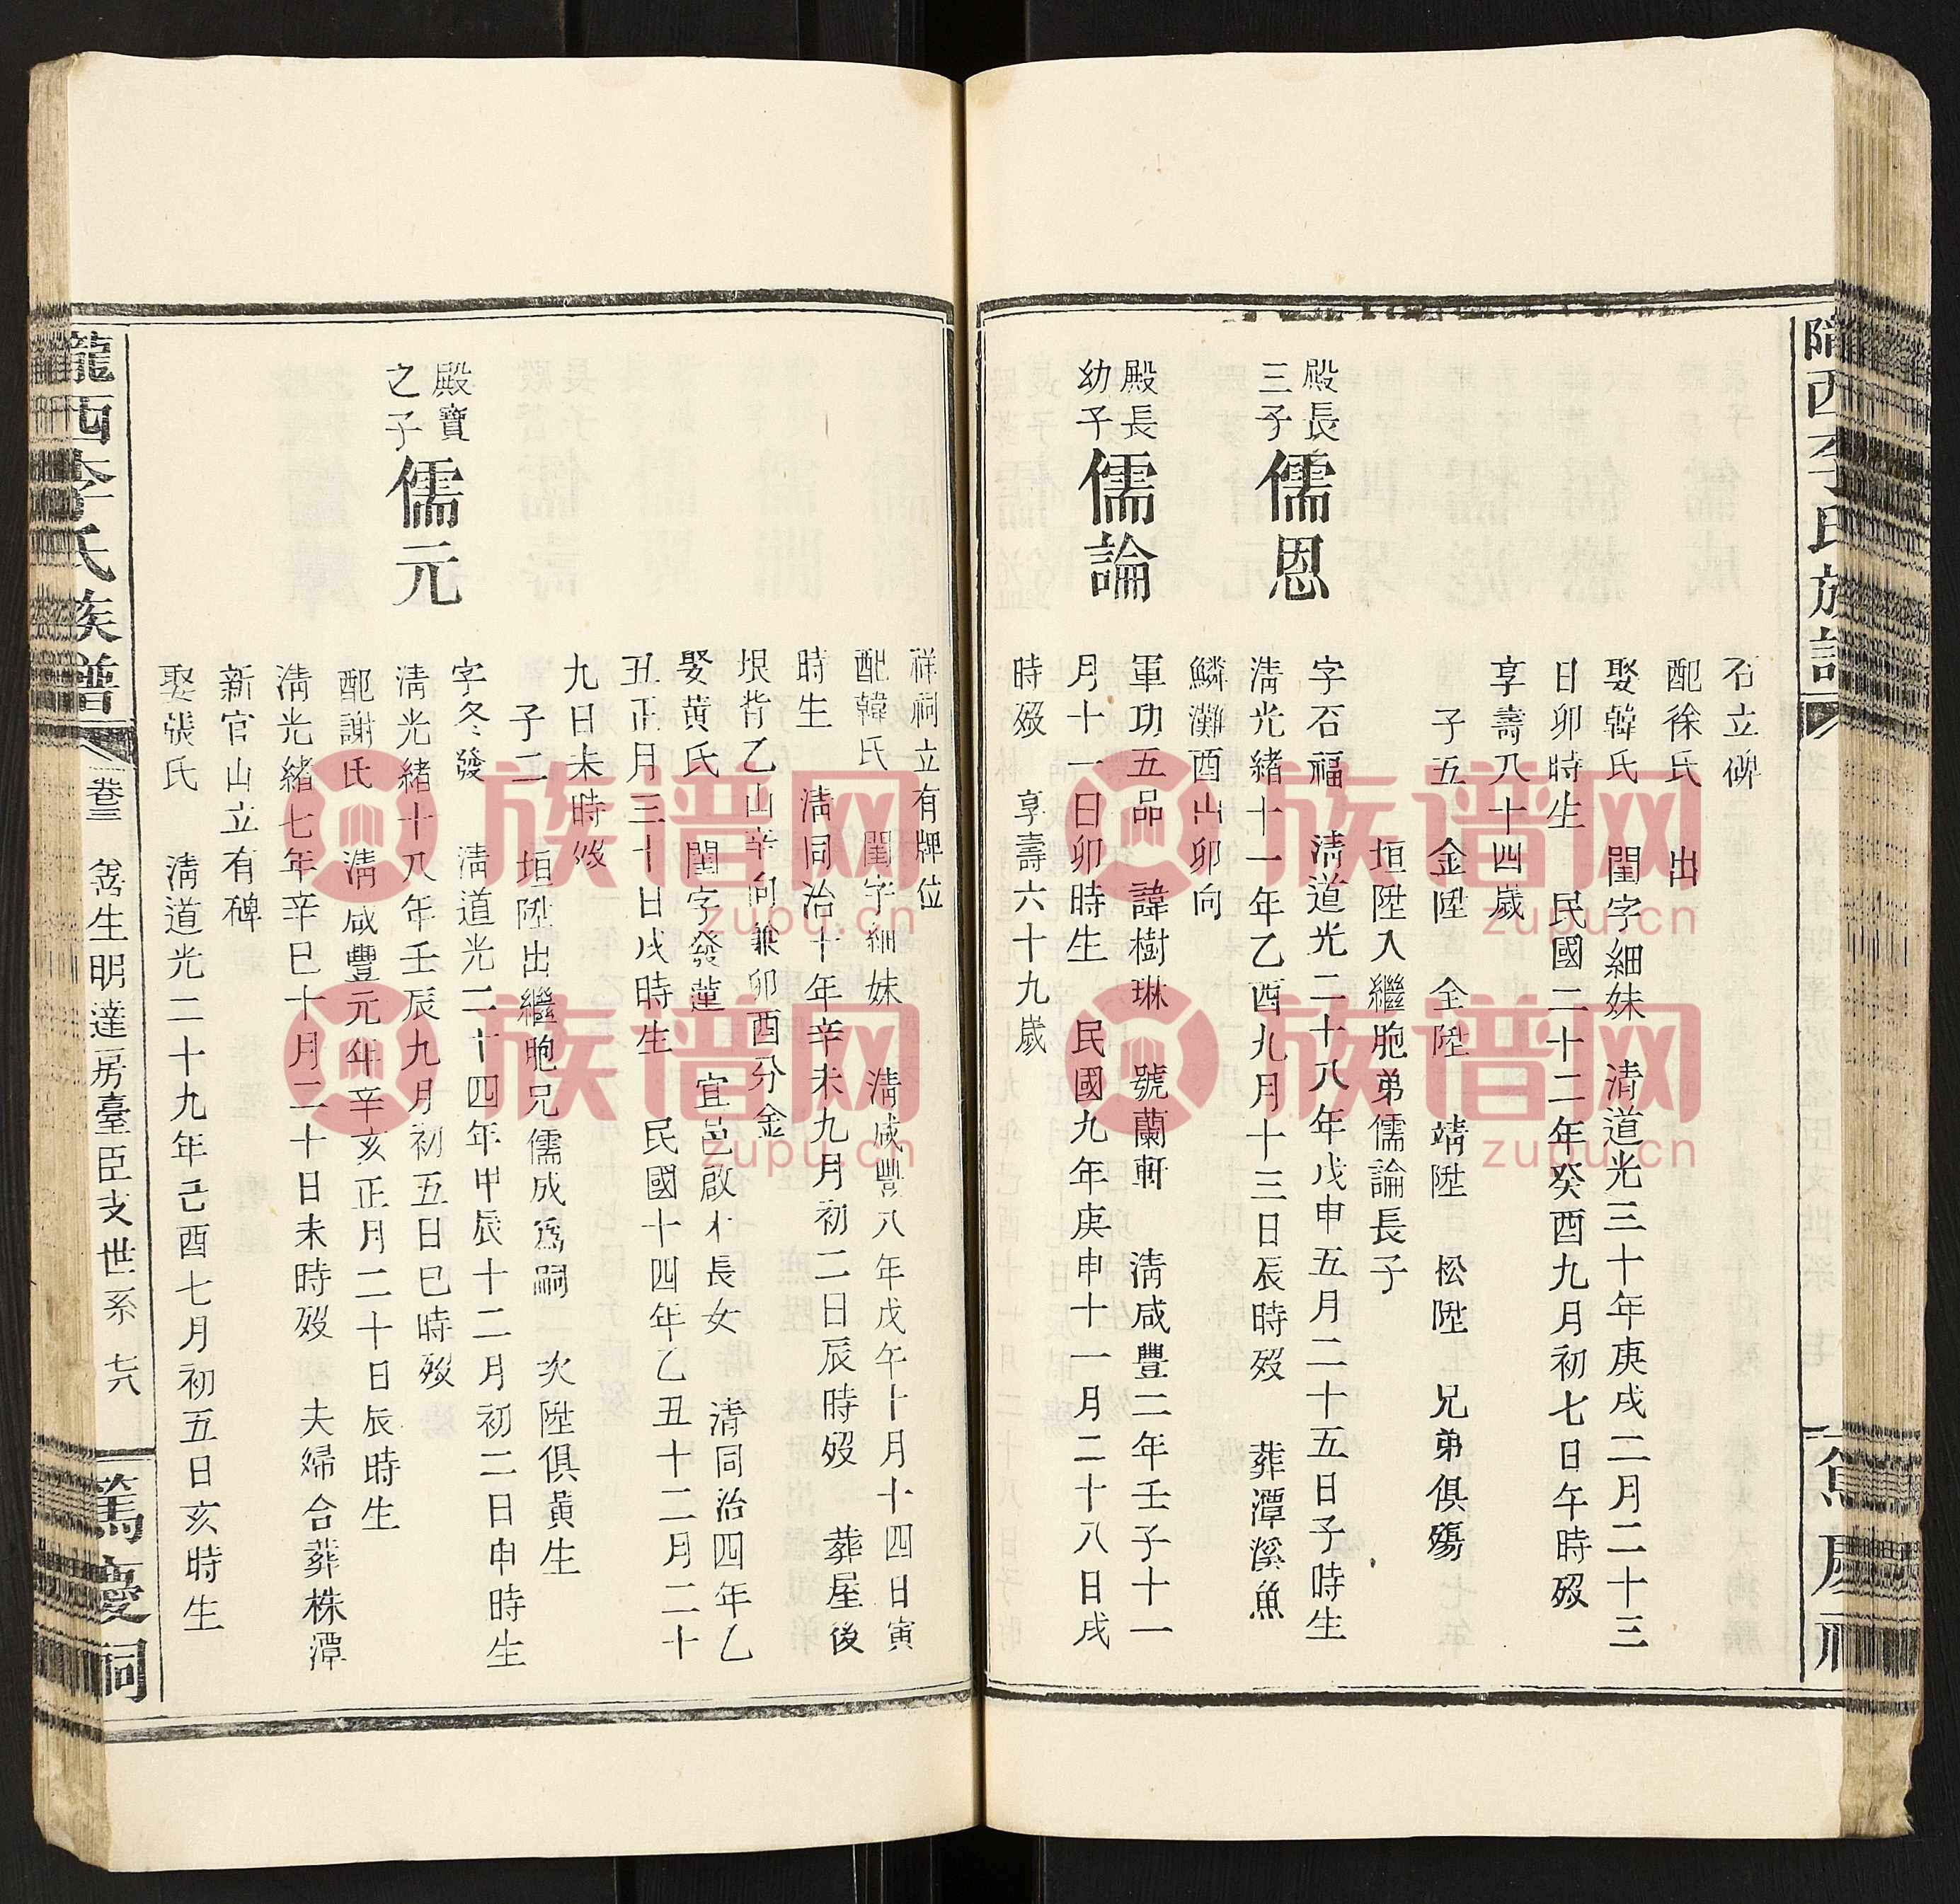 隴西李氏族譜
石立碑
配徐氏 出
娶韓氏 閨字細妹 清道光三十年庚戌二月二十三
日卯時生 民國二十二年癸酉九月初七日午時歿
享壽八十四歲
子五 金陞 全陞 靖陞 松陞 兄弟俱殤
垣陞入繼胞弟儒論長子
殿長三子 儒恩
字石福 清道光二十八年戊申五月二十五日子時生
清光緒十一年乙酉九月十三日辰時歿 葬潭溪魚
鱗灘酉山卯向
殿長幼子 儒論
軍功五品 諱樹琳 號蘭軒 清咸豐二年壬子十一
月十一日卯時生 民國九年庚申十一月二十八日戌
時歿 享壽六十九歲
祥祠立有牌位
配韓氏 閨字細妹 清咸豐八年戊午十月十四日寅
時生 清同治十年辛未九月初二日辰時歿 葬屋後
垠背乙山辛向兼卯酉分金
娶黃氏 閨字發蓮 宜邑啟才長女 清同治四年乙
丑正月三十日戌時生 民國十四年乙丑十二月二十
九日未時歿
子二 垣陞出繼胞兄儒成為嗣 次陞俱黃生
殿寶之子 儒元
字冬發 清道光二十四年甲辰十二月初二日申時生
清光緒十八年壬辰九月初五日巳時歿
配謝氏 清咸豐元年辛亥正月二十日辰時生
清光緒七年辛巳十月二十日未時歿 夫婦合葬株潭
新官山立有碑
娶張氏 清道光二十九年己酉七月初五日亥時生
隴西李氏族譜 卷三 嵡生明達房臺臣支世系 七六 篤慶祠
族谱网
zupu.cn
族谱网
zupu.cn
族谱网
zupu.cn
族谱网
zupu.cn